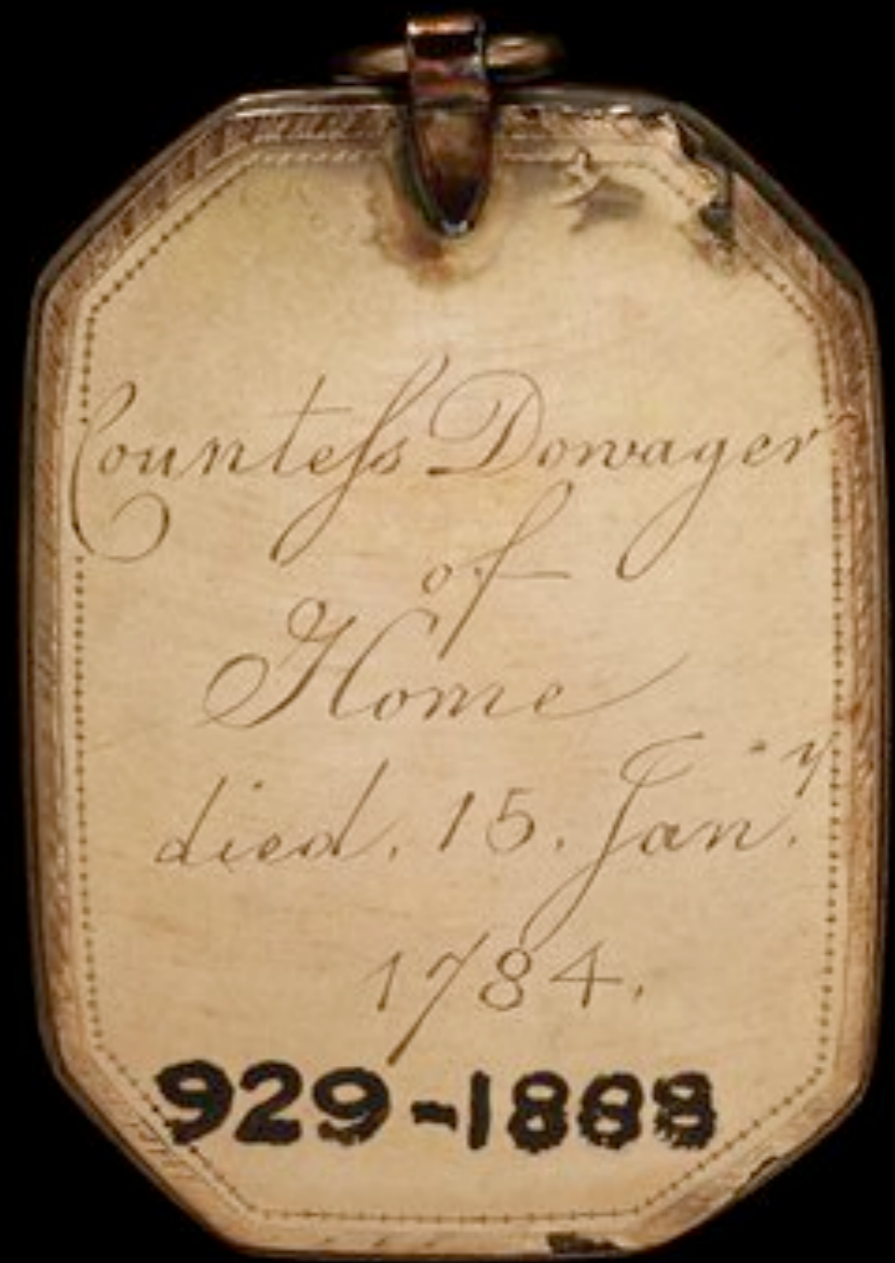 Counteſs Dowager
of
Home
died. 15. Jan.y
1784.
929-1888